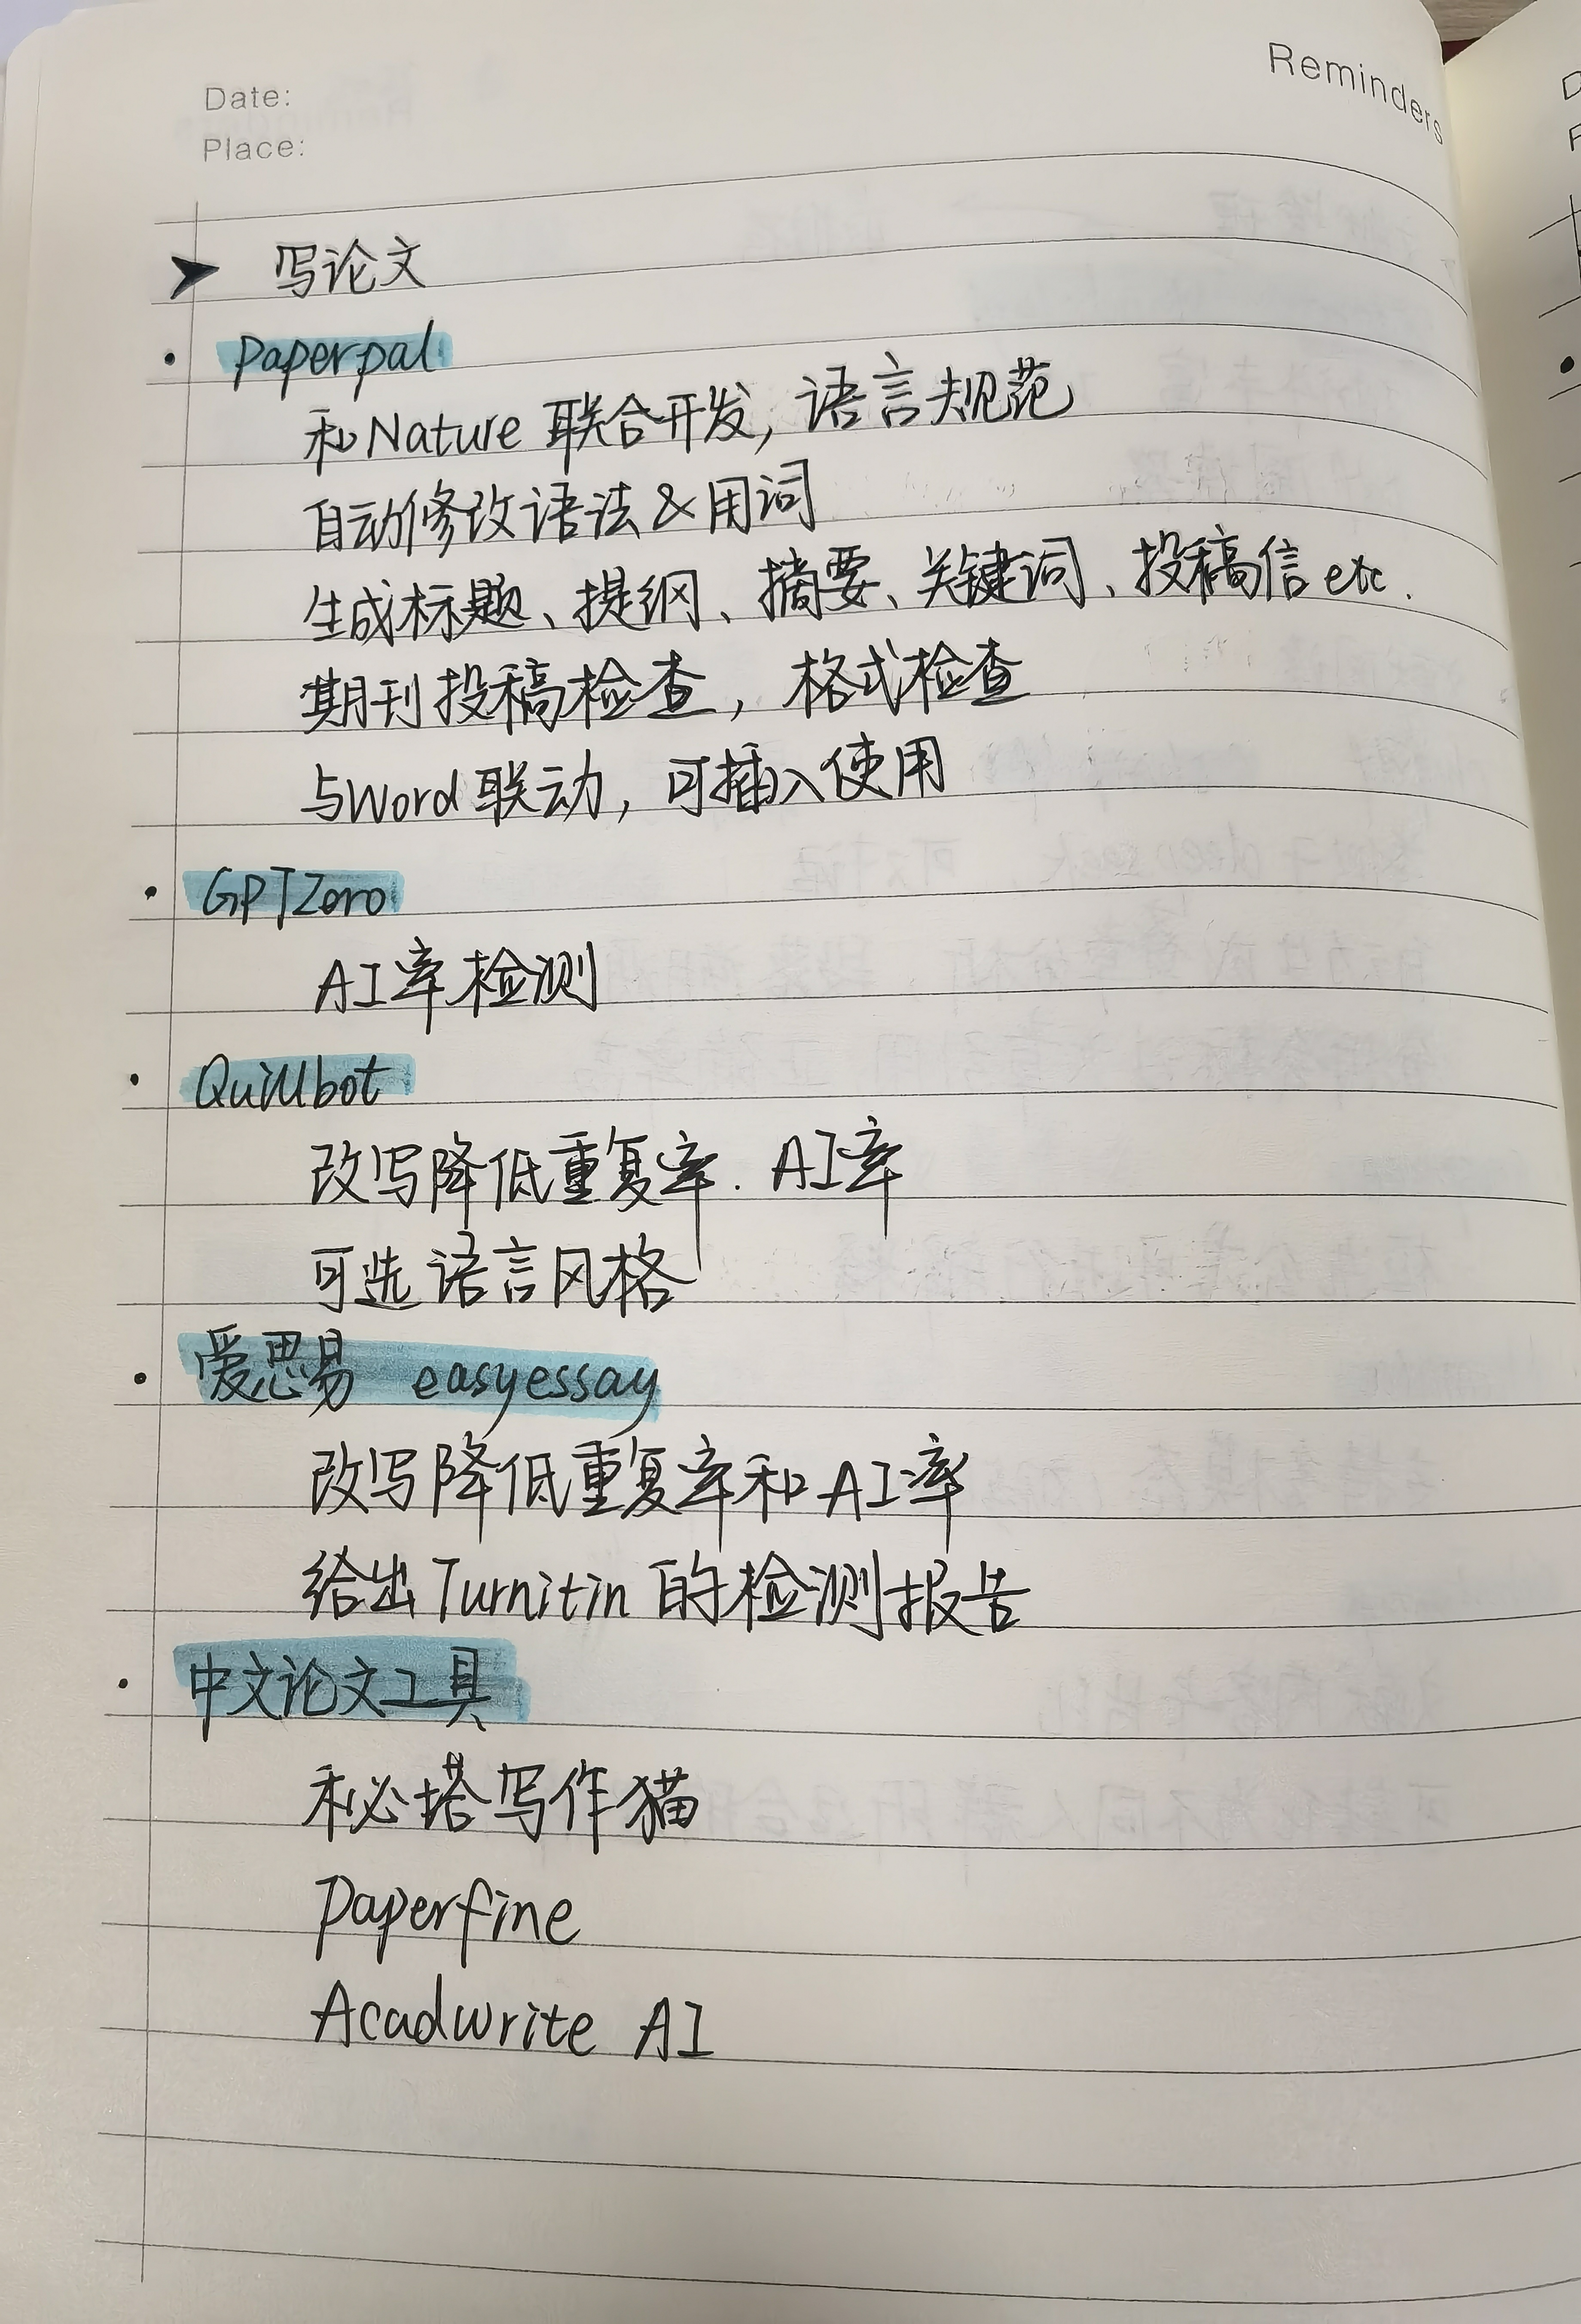 Date:
Reminders
Place:
➤ 写论文
• Paperpal
和Nature 联合开发, 语言规范
自动修改语法&用词
生成标题、提纲、摘要、关键词、投稿信etc.
期刊投稿检查, 格式检查
与Word联动, 可插入使用
• GPTZero
AI率检测
• Quillbot
改写降低重复率. AI率
可选语言风格
• 爱思易 easyessay
改写降低重复率和AI率
给出Turnitin的检测报告
• 中文论文工具
秘塔写作猫
Paperfine
Acadwrite AI